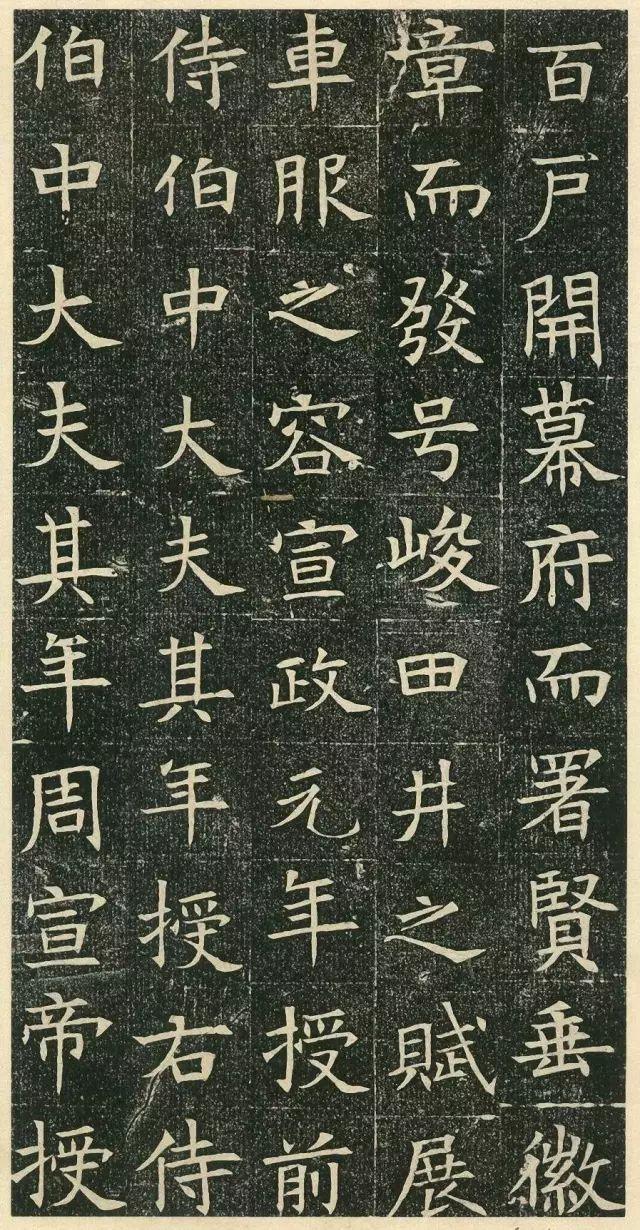 百戸開幕府而署賢垂徽
墇而發号峻田井之賦展
車服之容宣政元年授前
侍伯中大夫其年授右侍
伯中大夫其年周宣帝授